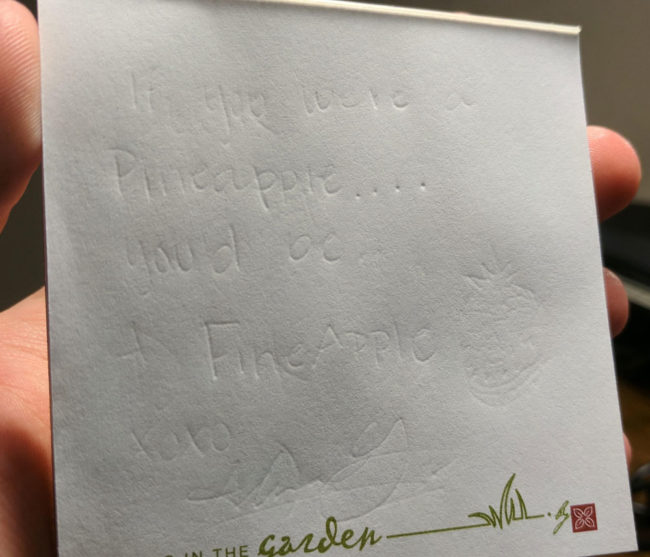 If you were a
Pineapple....
you'd be
A FineApple
xoxo
IN THE garden